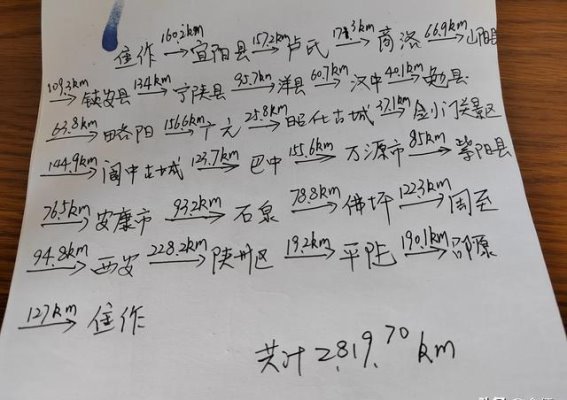 焦作 160.2km→ 宜阳县 157.2km→ 卢氏 178.3km→ 商洛 66.9km→ 山阳县
109.3km→ 镇安县 134km→ 宁陕县 95.7km→ 洋县 60.7km→ 汉中 40.1km→ 勉县
63.8km→ 略阳 156.6km→ 广元 25.8km→ 昭化古城 37.1km→ 剑门关景区
144.9km→ 阆中古城 123.7km→ 巴中 155.6km→ 万源市 85km→ 紫阳县
76.5km→ 安康市 93.2km→ 石泉 78.8km→ 佛坪 122.3km→ 周至
94.8km→ 西安 228.2km→ 陕州区 19.2km→ 平陆 190.1km→ 济源
127km→ 焦作
共计 2819.70 km